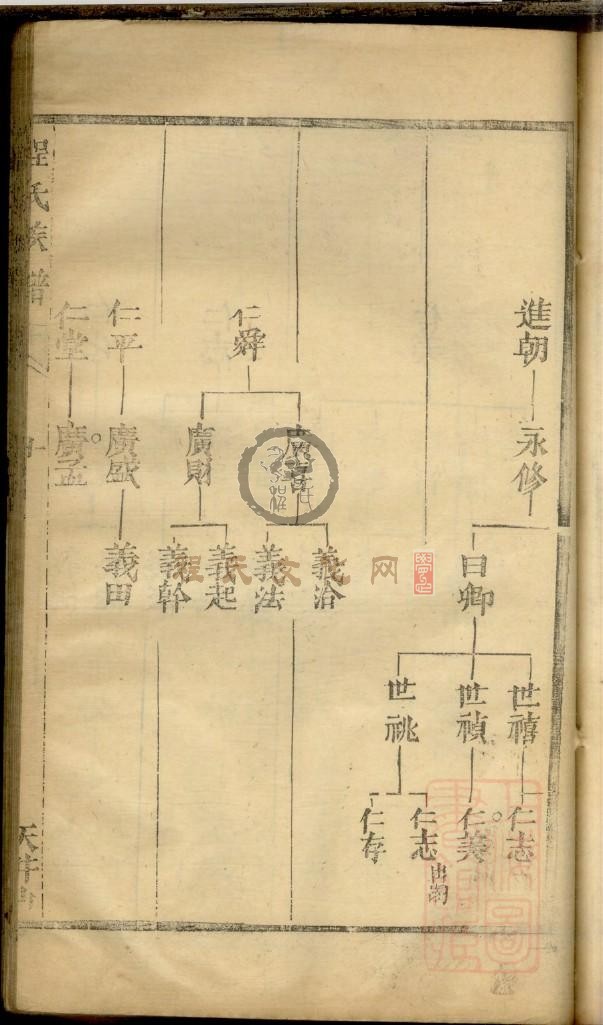 進朝
永修
日卿
世禧
世禎
世祧
仁志
仁美
仁志 出紹
仁存
仁舜
廣財
義洽
義法
義起
義幹
仁平
廣盛
義田
仁堂
廣孟
程氏族譜